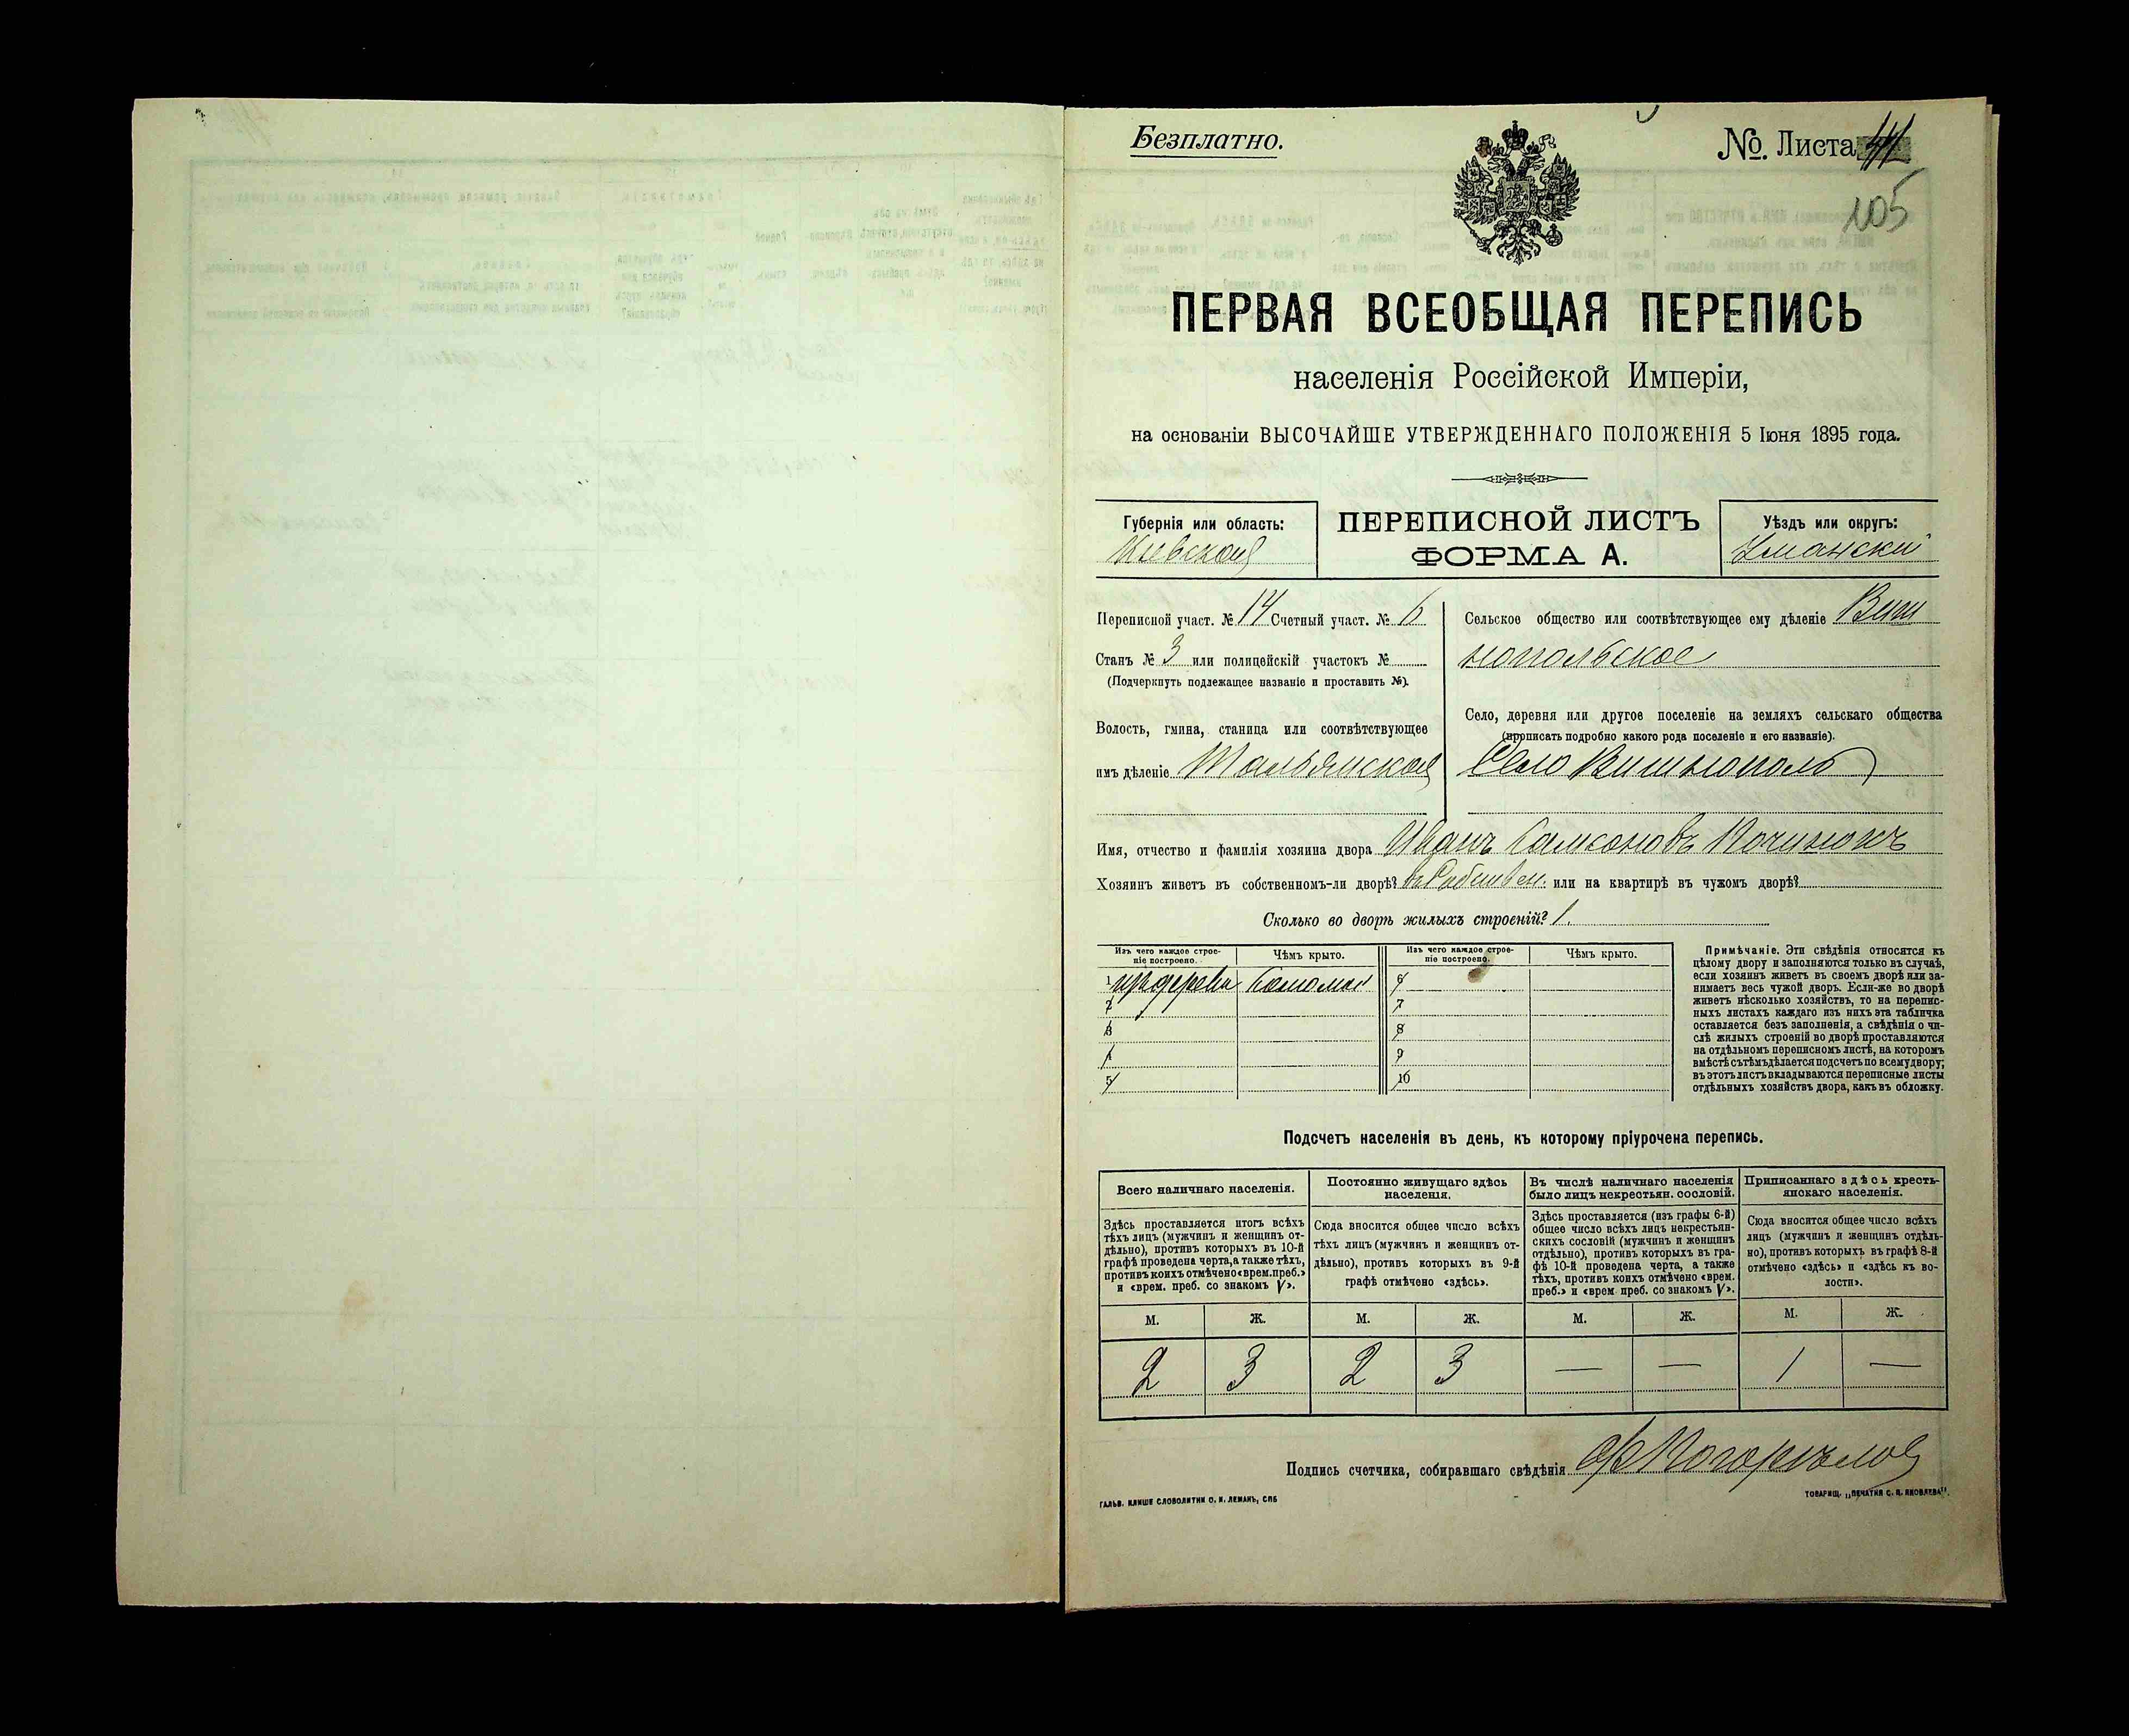 Безплатно.
№. Листа 41
105
ПЕРВАЯ ВСЕОБЩАЯ ПЕРЕПИСЬ
населенія Россійской Имперіи,
на основаніи ВЫСОЧАЙШЕ УТВЕРЖДЕННАГО ПОЛОЖЕНІЯ 5 Іюня 1895 года.
Губернія или область:
Кіевская
ПЕРЕПИСНОЙ ЛИСТЪ
ФОРМА А.
Уѣздъ или округъ:
Уманскій
Переписной участ. № 14 Счетный участ. № 6
Станъ № 3 или полицейскій участокъ №
(Подчеркнуть подлежащее названіе и проставить №).
Волость, гмина, станица или соотвѣтствующее
имъ дѣленіе Тальянская
Сельское общество или соотвѣтствующее ему дѣленіе Виш
нопольское
Село, деревня или другое поселеніе на земляхъ сельскаго общества
(прописать подробно какого рода поселеніе и его названіе).
Село Вишнополь
Имя, отчество и фамилія хозяина двора Иванъ Самсоновъ Починокъ
Хозяинъ живетъ въ собственномъ-ли дворѣ? въ собствен. или на квартирѣ въ чужомъ дворѣ?
Сколько во дворѣ жилыхъ строеній? 1.
Изъ чего каждое строе-
ніе построено.
Чѣмъ крыто.
Изъ чего каждое строе-
ніе построено.
Чѣмъ крыто.
1 изъ дерева Соломой 6
2 7
3 8
4 9
5 10
Примѣчаніе. Эти свѣдѣнія относятся къ
цѣлому двору и заполняются только въ случаѣ,
если хозяинъ живетъ въ своемъ дворѣ или за-
нимаетъ весь чужой дворъ. Если-же во дворѣ
живетъ нѣсколько хозяйствъ, то на перепис-
ныхъ листахъ каждаго изъ нихъ эта табличка
оставляется безъ заполненія, а свѣдѣнія о чи-
слѣ жилыхъ строеній во дворѣ проставляются
на отдѣльномъ переписномъ листѣ, на которомъ
вмѣстѣ съ тѣмъ дѣлается подсчетъ по всему двору;
въ этотъ листъ вкладываются переписные листы
отдѣльныхъ хозяйствъ двора, какъ въ обложку.
Подсчетъ населенія въ день, къ которому пріурочена перепись.
Всего наличнаго населенія.
Здѣсь проставляется итогъ всѣхъ
тѣхъ лицъ (мужчинъ и женщинъ от-
дѣльно), противъ которыхъ въ 10-й
графѣ проведена черта, а также тѣхъ,
противъ коихъ отмѣчено «врем. преб.»
и «врем. преб. со знакомъ V».
Постоянно живущаго здѣсь
населенія.
Сюда вносится общее число всѣхъ
тѣхъ лицъ (мужчинъ и женщинъ от-
дѣльно), противъ которыхъ въ 9-й
графѣ отмѣчено «здѣсь».
Въ числѣ наличнаго населенія
было лицъ некрестьян. сословій.
Здѣсь проставляется (изъ графы 6-й)
общее число всѣхъ лицъ некрестьян-
скихъ сословій (мужчинъ и женщинъ
отдѣльно), противъ которыхъ въ гра-
фѣ 10-й проведена черта, а также
тѣхъ, противъ коихъ отмѣчено «врем.
преб.» и «врем преб. со знакомъ V».
Приписаннаго здѣсь кресть-
янскаго населенія.
Сюда вносится общее число всѣхъ
лицъ (мужчинъ и женщинъ отдѣль-
но), противъ которыхъ въ графѣ 8-й
отмѣчено «здѣсь» и «здѣсь къ во-
лости».
М. Ж. М. Ж. М. Ж. М. Ж.
2 3 2 3 — — 1 —
Подпись счетчика, собиравшаго свѣдѣнія Погорѣлов
ГАЛЬВ. КЛИШЕ СЛОВОЛИТНИ О. И. ЛЕМАНЪ, СПБ
ТОВАРИЩ. „ПЕЧАТНЯ С. П. ЯКОВЛЕВА".